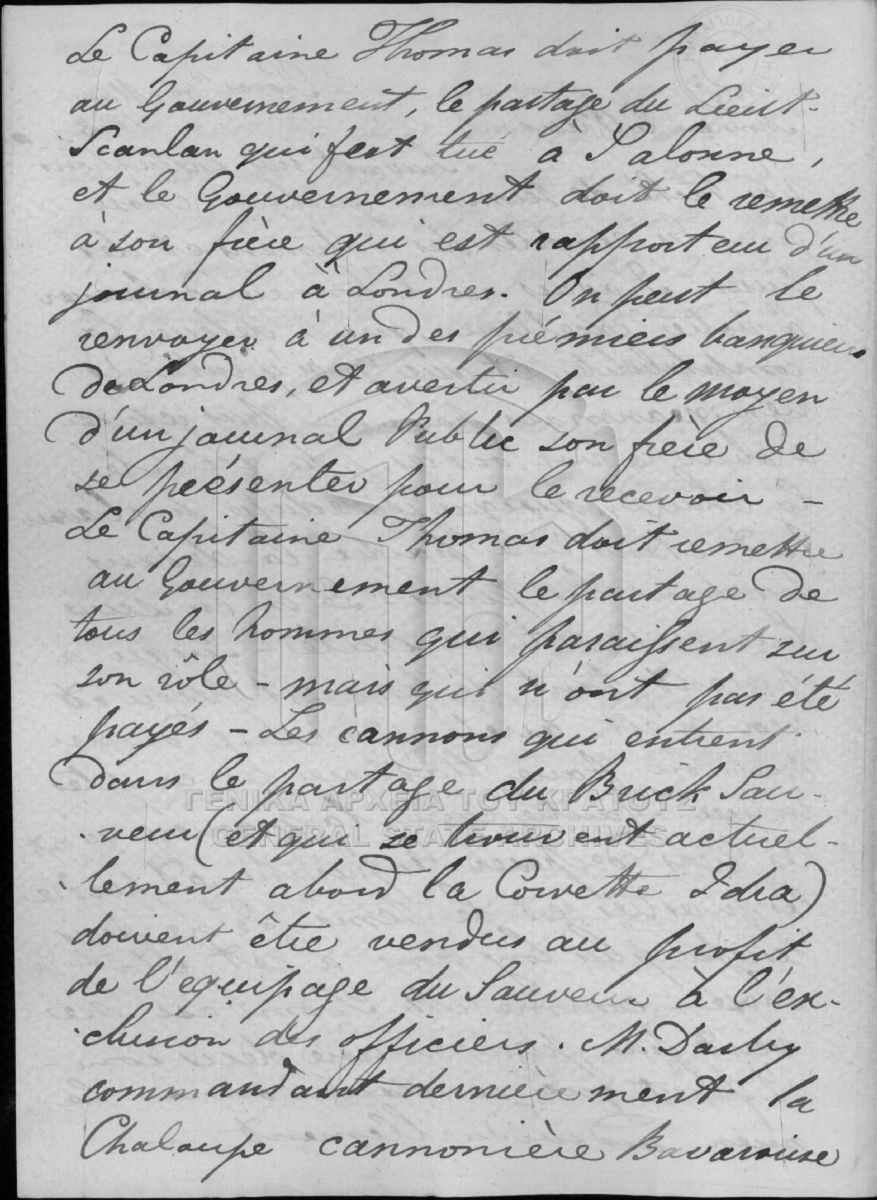 Le Capitaine Thomas doit payer
au Gouvernement, le partage du Lieut.
Scanlan qui fut tué à Salonne,
et le Gouvernement doit le remettre
à son frère qui est rapporteur d'un
journal à Londres. On peut le
renvoyer à un des prémiers banquiers
de Londres, et avertir par le moyen
d'un journal Public son frère de
se présenter pour le recevoir –
Le Capitaine Thomas doit remettre
au Gouvernement le partage de
tous les hommes qui paraissent sur
son rôle – mais qui n'ont pas été
payés – Les cannons qui entrent
dans le partage du Brick Sau-
veur (et qui se trouvent actuel-
lement abord la Corvette Idra)
doivent être vendus au profit
de l'équipage du Sauveur à l'ex-
clusion des officiers. M. Darby
commandant dernièrement la
Chaloupe cannonière Bavaroise
ΓΕΝΙΚΑ ΑΡΧΕΙΑ ΤΟΥ ΚΡΑΤΟΥΣ
GENERAL STATE ARCHIVES